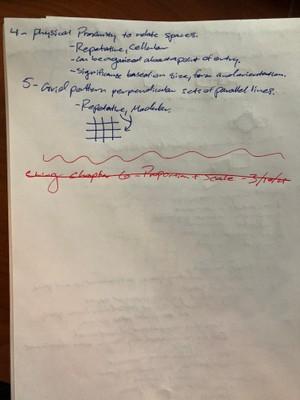 4 - Physical Proximity to relate spaces.
- Repetative, Cellular
- Can be organized about a point of entry.
- Significance based on size, form and orientation.
5 - Grid pattern perpendicular sets of parallel lines.
- Repetative, Modular.
Ching - Chapter 6 - Proportion + Scale - 3/10/21